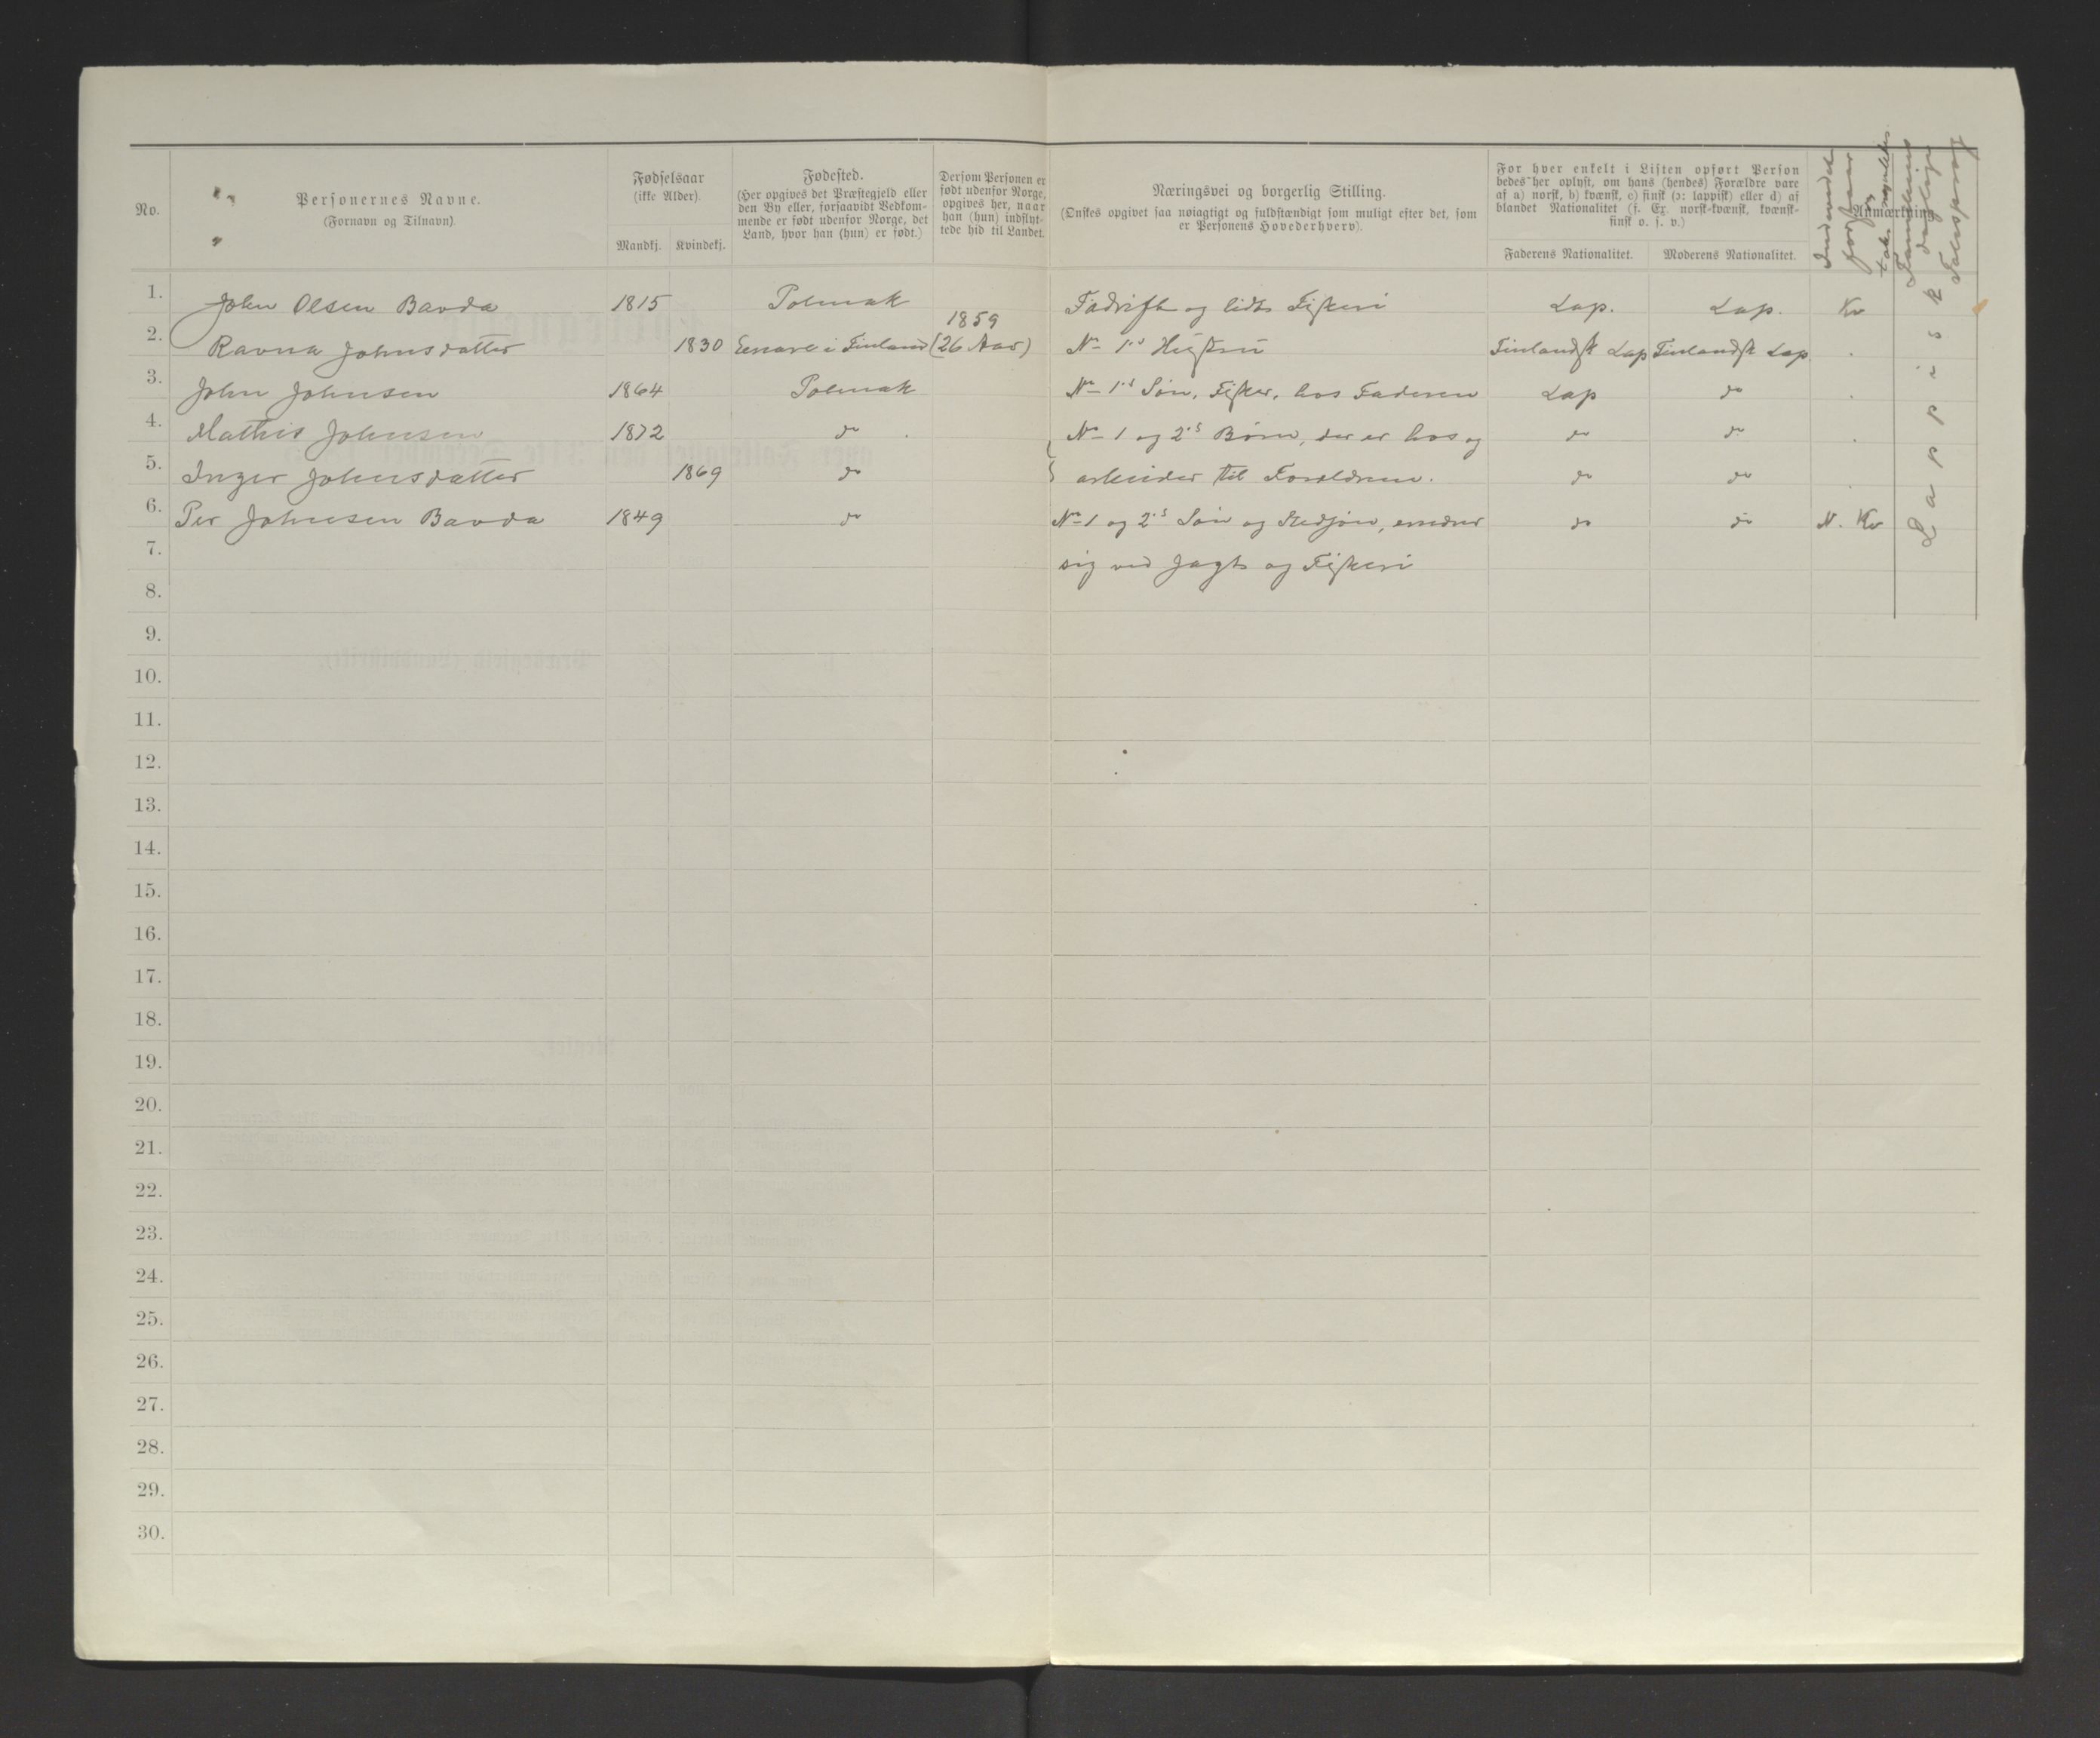 No.
Personernes Navne.
(Fornavn og Tilnavn)
Fødselsaar
(ikke Alder)
Mandkj. Kvindekj.
Fødested.
(Her opgives det Præstegjeld eller
den By eller, forsaavidt Vedkom-
mende er født udenfor Norge, det
Land, hvor han (hun) er født.)
Dersom Personen er
født udenfor Norge,
opgives her, naar
han (hun) indflyt-
tede hid til Landet.
Næringsvei og borgerlig Stilling.
(Ønskes opgivet saa nøiagtigt og fuldstændigt som muligt efter det, som
er Personens Hovederhverv).
For hver enkelt i Listen opført Person
bedes her oplyst, om hans (hendes) Forældre vare
af a) norsk, b) kvænsk, c) finsk (ɔ: lappisk) eller d) af
blandet Nationalitet (f. Ex. norsk-kvænsk, kvænsk-
finsk o. s. v.)
Faderens Nationalitet. Moderens Nationalitet.
Anmærkning
forstaar
og
Familiens
daglige
Talesprog
Lappisk
1. John Olsen Bavda 1815 Polmak Fædrift og lidt Fiskeri Lap. Lap. Kv
1859
2. Ravna Johnsdatter 1830 Enare i Finland (26 Aar) No 1's Hustru Finlandsk Lap Finlandsk Lap
3. John Johnsen 1864 Polmak No 1's Søn, Fisker, hos Faderen Lap do
4. Mathis Johnsen 1872 do No 1 og 2's Børn, der er hos og do do
5. Inger Johnsdatter 1869 do arbeider til Forældrene. do do
6. Per Johnsen Bavda 1849 do No 1 og 2's Søn og Stedsøn, ernærer do do N. Kv
7. sig ved Jagt og Fiskeri
8.
9.
10.
11.
12.
13.
14.
15.
16.
17.
18.
19.
20.
21.
22.
23.
24.
25.
26.
27.
28.
29.
30.